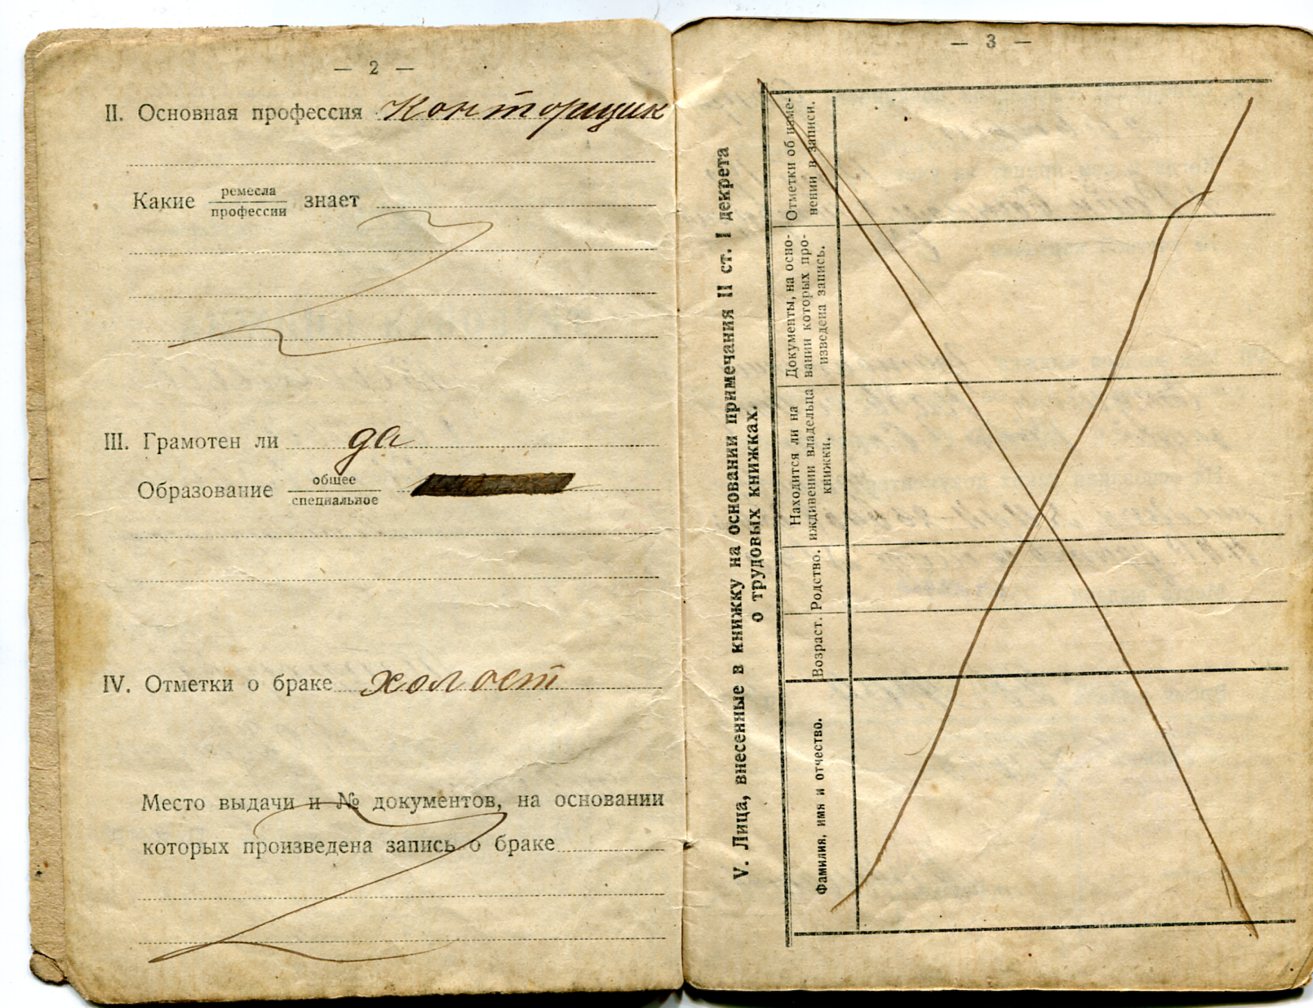 — 2 —
II. Основная профессия конторщик
Какие ремесла
профессии знает
III. Грамотен ли да
Образование общее
специальное
IV. Отметки о браке холост
Место выдачи и № документов, на основании
которых произведена запись о браке
— 3 —
V. Лица, внесенные в книжку на основании примечания II ст. I декрета
о трудовых книжках.
Фамилия, имя и отчество.
Возраст.
Родство.
Находится ли на
иждивении владельца
книжки.
Документы, на осно-
вании которых про-
изведена запись.
Отметки об изме-
нении в записи.